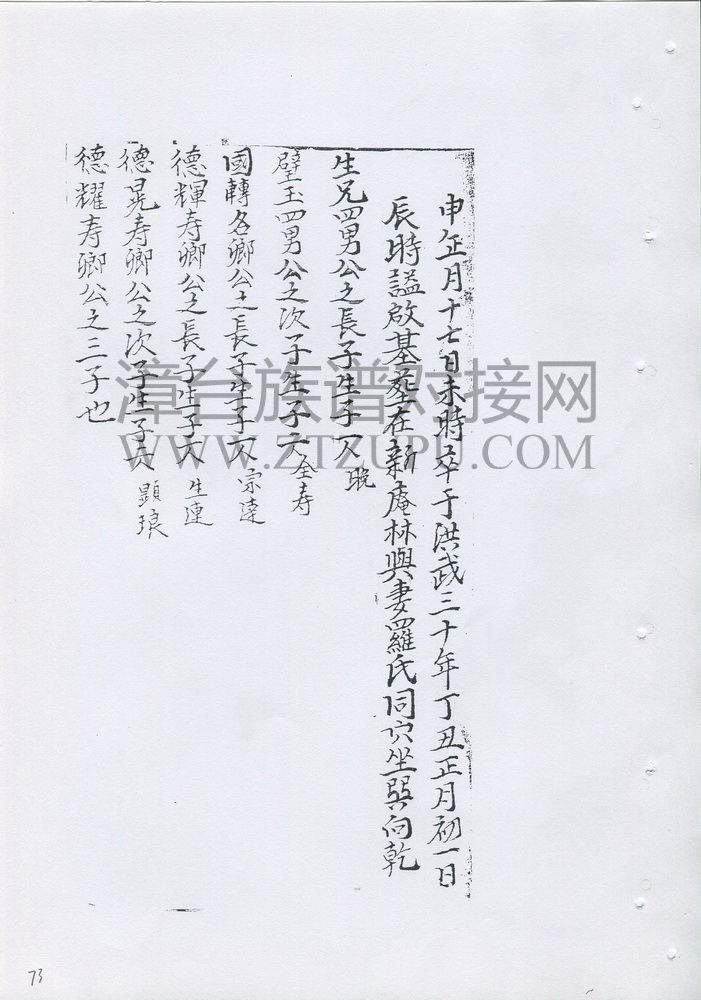 申年正月十七日未時卒于洪武三十年丁丑正月初一日
辰時諡啟基塟在新庵林與妻羅氏同穴坐巽向乾
生兄四男公之長子生子一人 晩
璧玉四男公之次子生子一人 全寿
國轉各卿公之長子生子一人 宗達
德輝寿卿公之長子生子一人 生連
德晃寿卿公之次子生子二人 顕琅
德耀寿卿公之三子也
漳台族谱对接网
WWW.ZTZUPU.COM
73